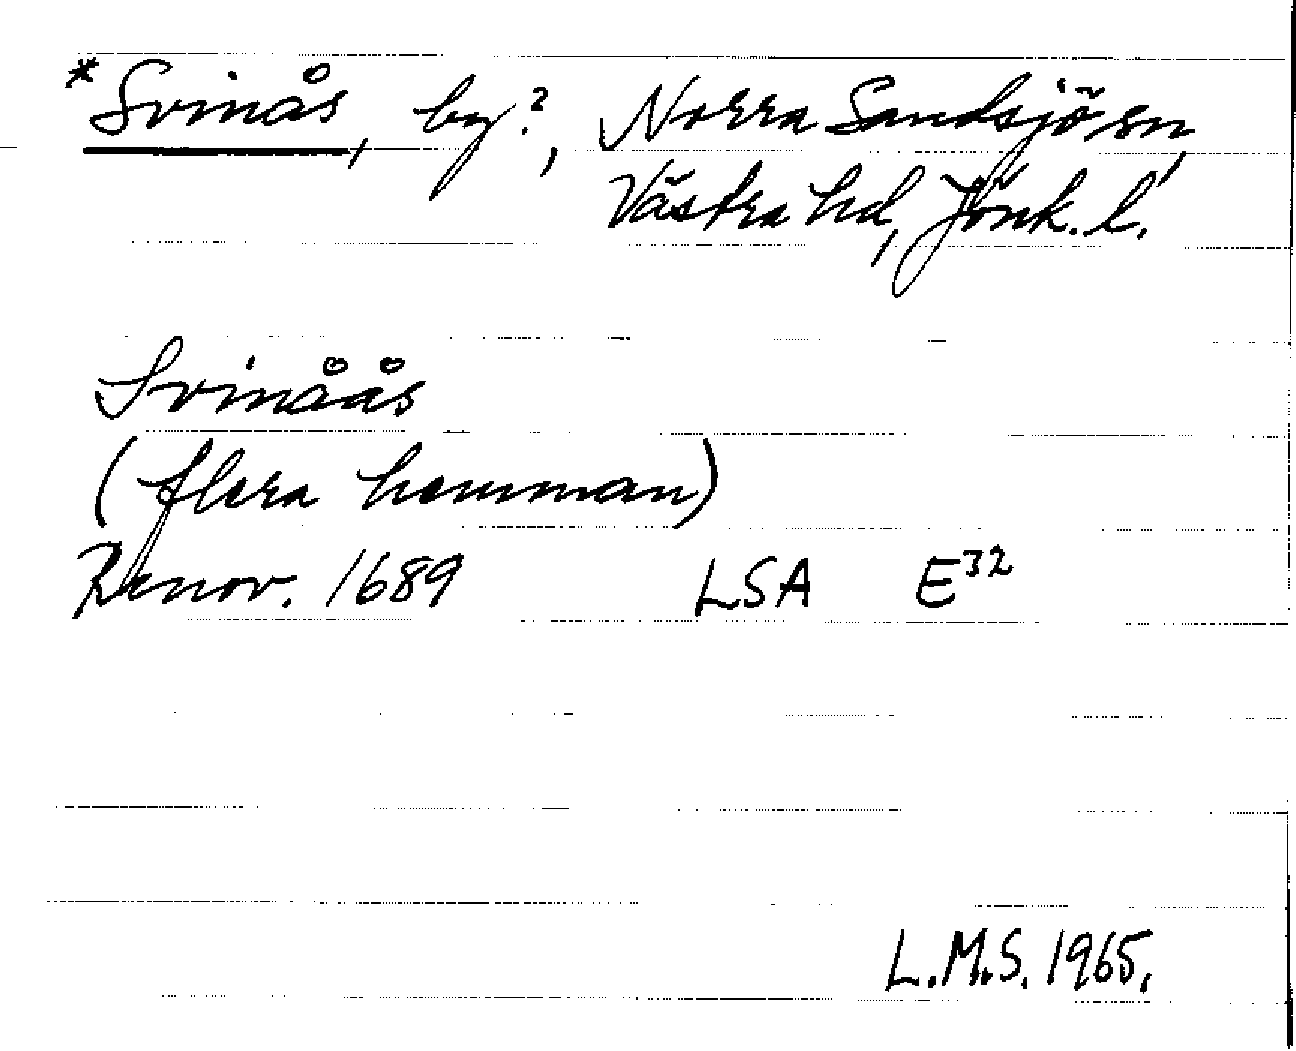 *Svinås, by?, Norra Sandsjö sn,
Västra hd, Jönk. l.
Svinåås
(flera hemman)
Renov. 1689 LSA E³²
L.M.S. 1965.